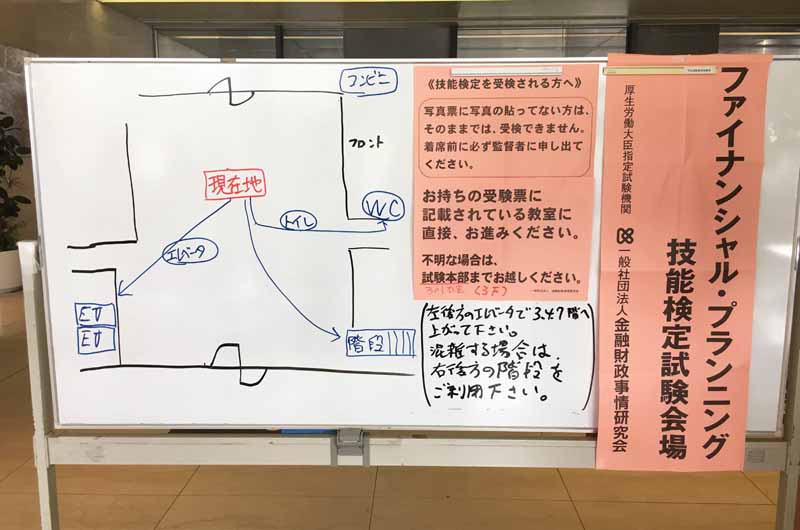 コンビニ
フロント
現在地
トイレ
WC
エレベータ
EV
EV
階段
《技能検定を受検される方へ》
写真票に写真の貼ってない方は、
そのままでは、受検できません。
着席前に必ず監督者に申し出て
ください。
お持ちの受験票に
記載されている教室に
直接、お進みください。
不明な場合は、
試験本部までお越しください。
(3F)
左後方のエレベータで3.4.7階へ
上がって下さい。
混雑する場合は、
右後方の階段を
ご利用下さい。
ファイナンシャル・プランニング
技能検定試験会場
厚生労働大臣指定試験機関
一般社団法人 金融財政事情研究会